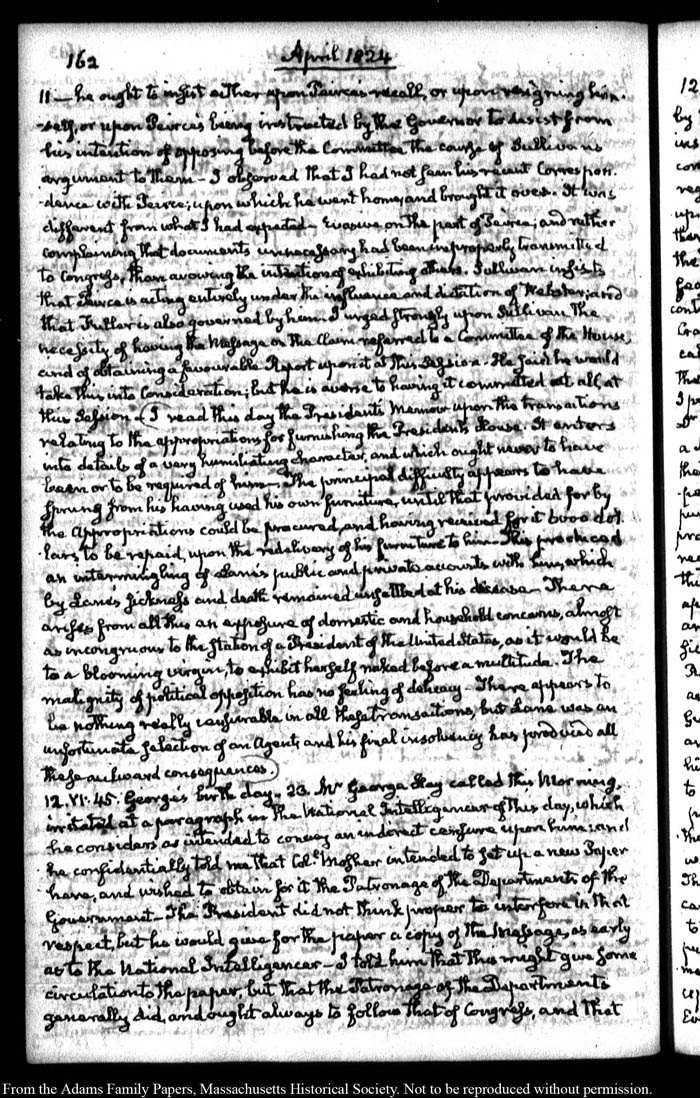 162
April 1824
11 — he ought to insist either upon Peirce's recall, or upon resigning him-
-self, or upon Peirce's being instructed by the Governor to desist from
his intention of opposing before the Committee the course of Sullivan's
argument to them — I observed that I had not seen his recent Correspon-
dence with Peirce; upon which he went home, and brought it over. It was
different from what I had expected — Evasive, on the part of Peirce; and rather
complaining that documents unnecessary had been improperly transmitted
to Congress, than avowing the intention of exhibiting others. Sullivan insists
that Peirce is acting entirely under the influence and dictation of Webster; and
that Fuller is also governed by him. I urged strongly upon Sullivan the
necessity of having the Message on the Claim referred to a Committee of the House,
and of obtaining a favourable Report upon it at this Session. He said he would
take this into Consideration; but he is averse to having it committed at all, at
this Session. (I read this day the President's Memoir upon the transactions
relating to the appropriations for furnishing the President's House. It enters
into details of a very humiliating character, and which ought never to have
been or to be required of him — The principal difficulty appears to have
sprung from his having used his own furniture, until that provided for by
the Appropriations could be procured, and having received for it 6000 dol-
lars, to be repaid, upon the redelivery of his furniture to him — This produced
an intermingling of Lane's public and private accounts with him, which
by Lane's sickness and death remained unsettled at his decease — There
arises from all this an exposure of domestic and household concerns, almost
as incongruous to the station of a President of the United States, as it would be
to a blooming virgin, to exhibit herself naked before a multitude. The
malignity of political opposition has no feeling of delicacy — There appears to
be nothing really censurable in all these transactions, but Lane was an
unfortunate selection of an Agent, and his final insolvency has produced all
these awkward consequences.)
12. VI. 45. George's birth day. 23. Mr George Hay called this Morning,
irritated at a paragraph in the National Intelligencer of this day, which
he considers as intended to convey an indirect censure upon him: and
he confidentially told me that Coll. Mosher intended to set up a new Paper
here, and wished to obtain for it the Patronage of the Departments of the
Government — The President did not think proper to interfere in that
respect, but he would give for the paper a copy of the Message, as early
as to the National Intelligencer — I told him that this might give some
circulation to the paper, but that the Patronage of the Departments
generally did, and ought always to follow that of Congress, and that
12
by
ins
con
From the Adams Family Papers, Massachusetts Historical Society. Not to be reproduced without permission.